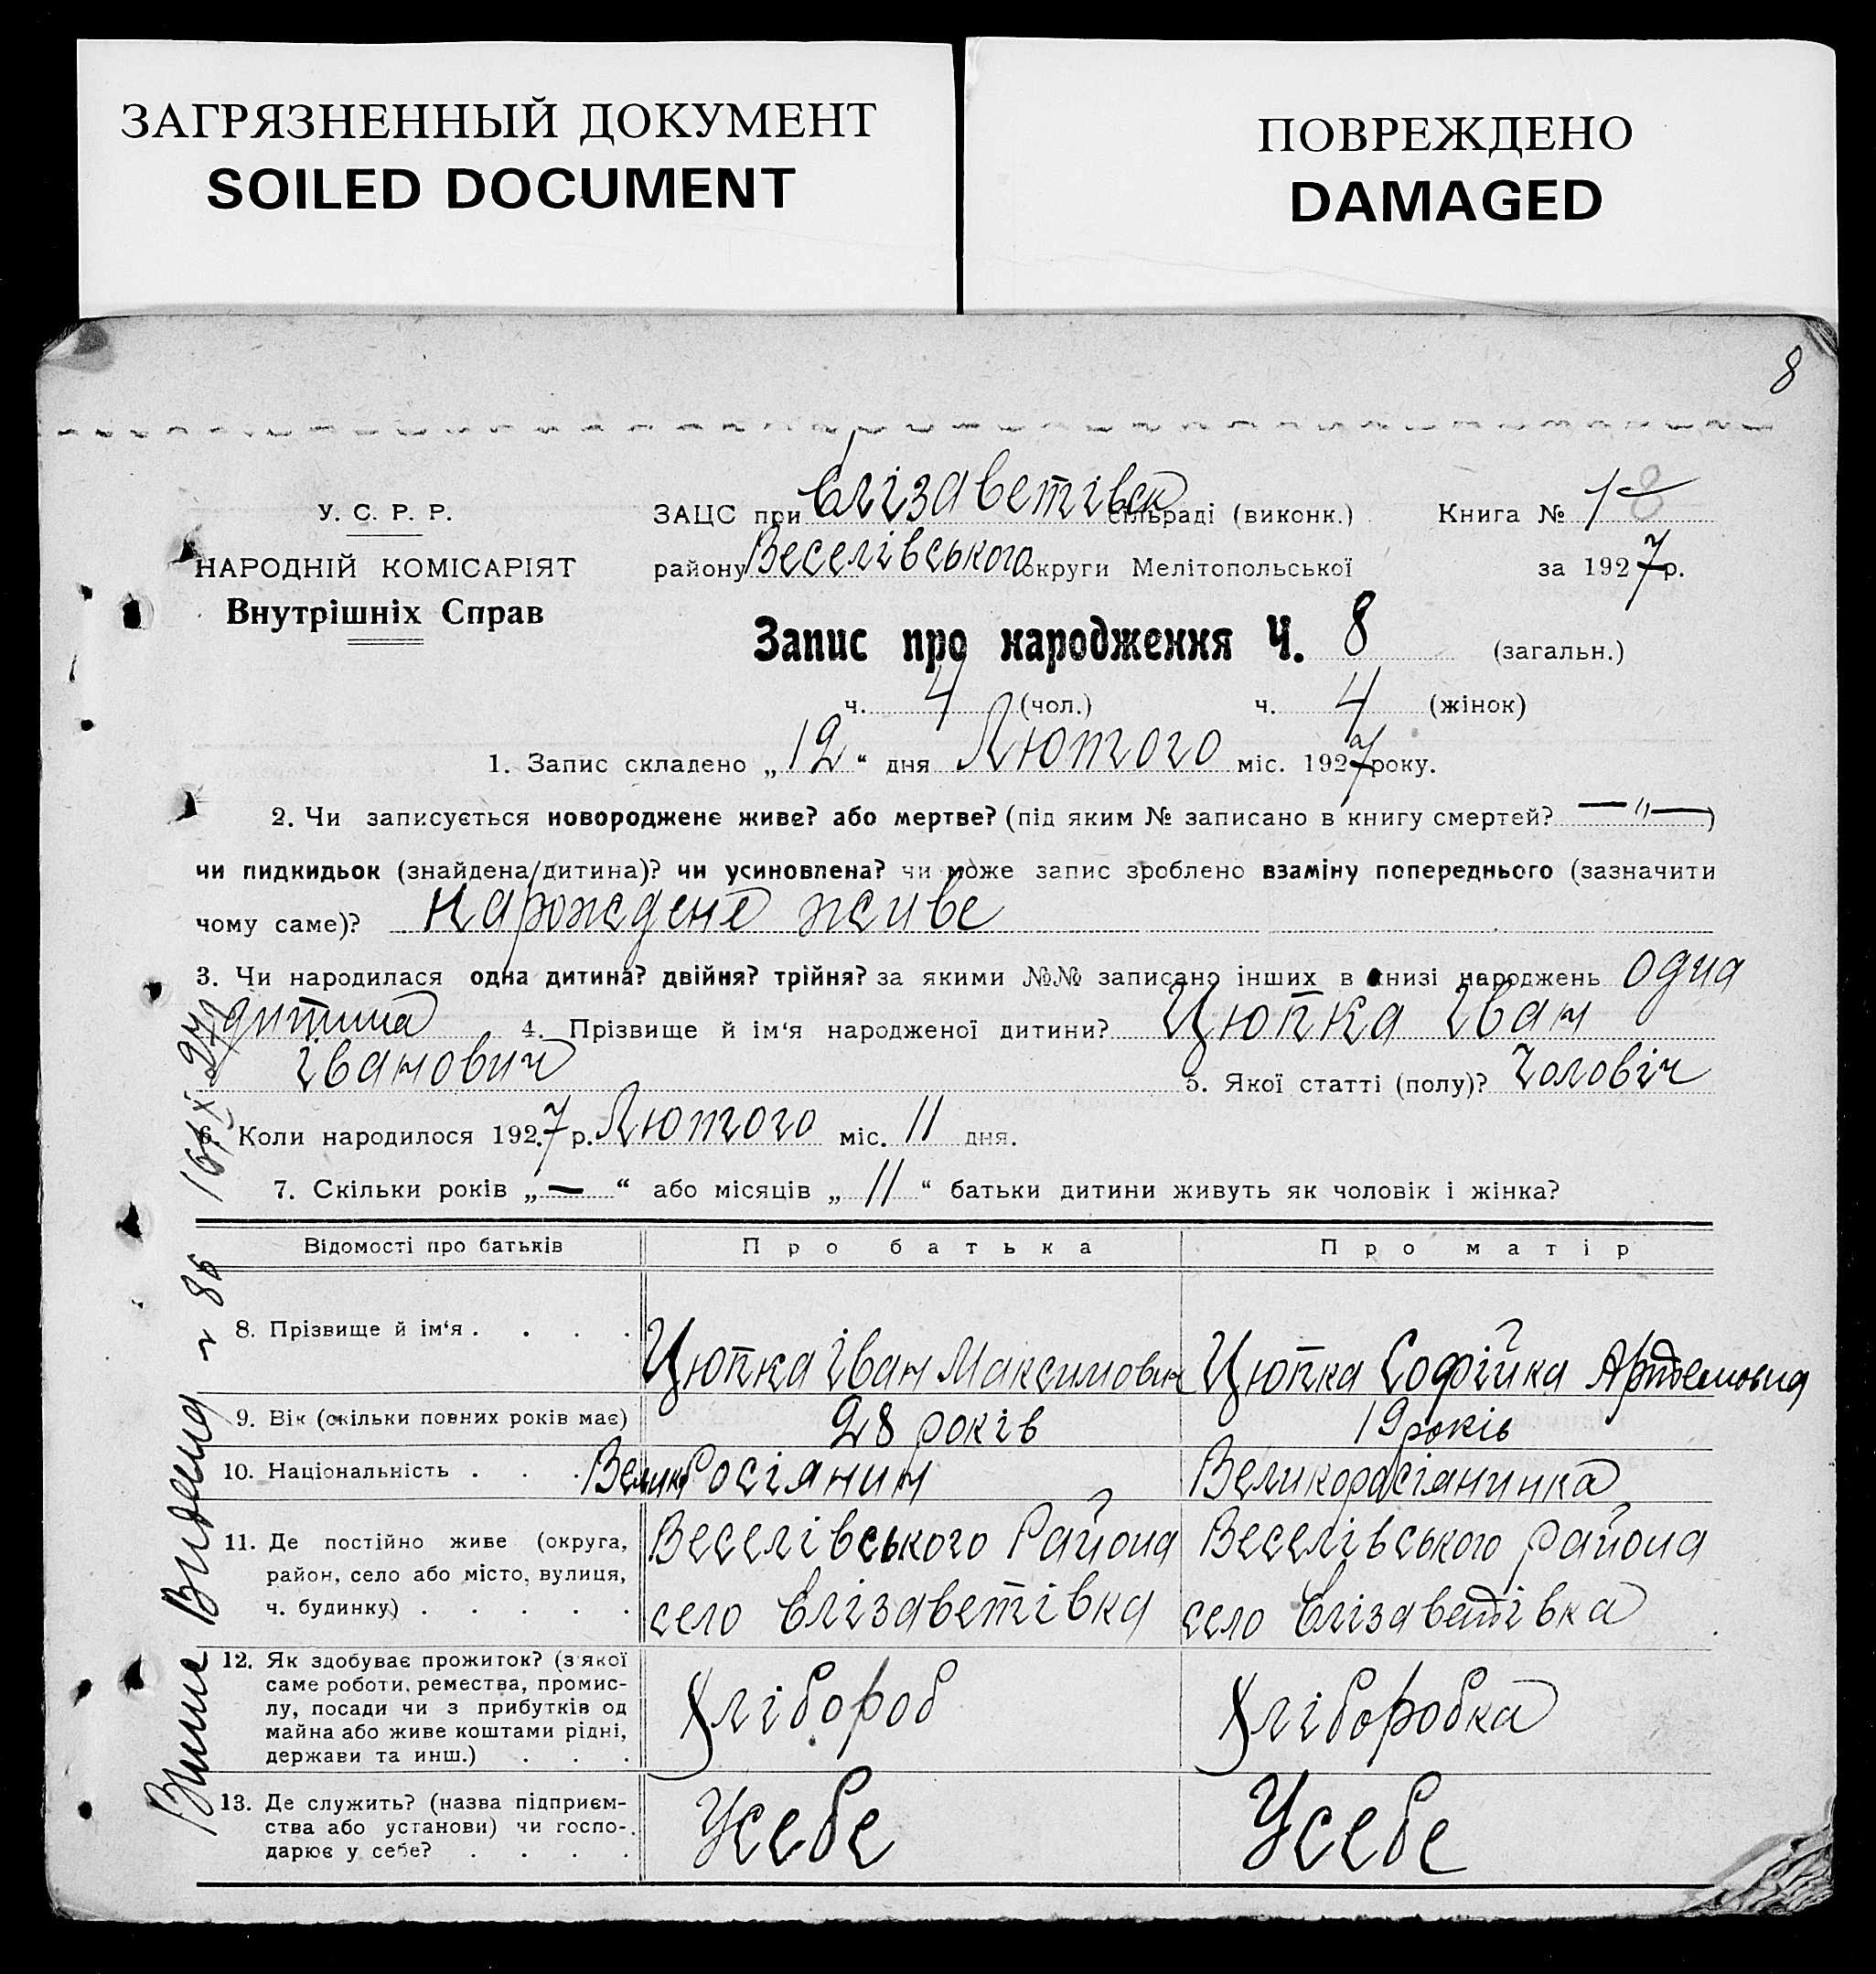 ЗАГРЯЗНЕННЫЙ ДОКУМЕНТ
SOILED DOCUMENT
ПОВРЕЖДЕНО
DAMAGED
8
У. С. Р. Р.
НАРОДНІЙ КОМІСАРІЯТ
Внутрішніх Справ
ЗАЦС при Єлізаветівск сільраді (виконк.) Книга № 1
району Веселівського округи Мелітопольської за 1927 р.
Запис про народження Ч. 8 (загальн.)
ч. 4 (чол.) ч. 4 (жінок)
1. Запис складено „12“ дня Лютого міс. 1927 року.
2. Чи записується новороджене живе? або мертве? (під яким № записано в книгу смертей? — „ —)
чи пидкидьок (знайдена дитина)? чи усиновлена? чи може запис зроблено взаміну попереднього (зазначити
чому саме)? Нарождене живе
3. Чи народилася одна дитина? двійня? трійня? за якими №№ записано інших в книзі народжень одна
дитина 4. Прізвище й ім'я народженої дитини? Цюпка Іван
Іванович 5. Якої статті (полу)? Чоловіч
6. Коли народилося 1927 р. Лютого міс. 11 дня.
7. Скільки років „—“ або місяців „11“ батьки дитини живуть як чоловік і жінка?
Відомості про батьків Про батька Про матір
8. Прізвище й ім'я . . . . Цюпка Іван Максимович Цюпка Софійка Артемовна
9. Вік (скільки повних років має) 28 років 19 років
10. Національність . . . Великоросіянин Великоросіянинка
11. Де постійно живе (округа, Веселівського Района Веселівського района
район, село або місто, вулиця,
ч. будинку) . . . . . село Єлізаветівка село Єлізаветівка
12. Як здобуває прожиток? (з якої
саме роботи, ремества, промис-
лу, посади чи з прибутків од Хлібороб Хліборобка
майна або живе коштами рідні,
держави та инш.) . . .
13. Де служить? (назва підприєм-
ства або установи) чи госпо- Усебе Усебе
дарює у себе? . . . .